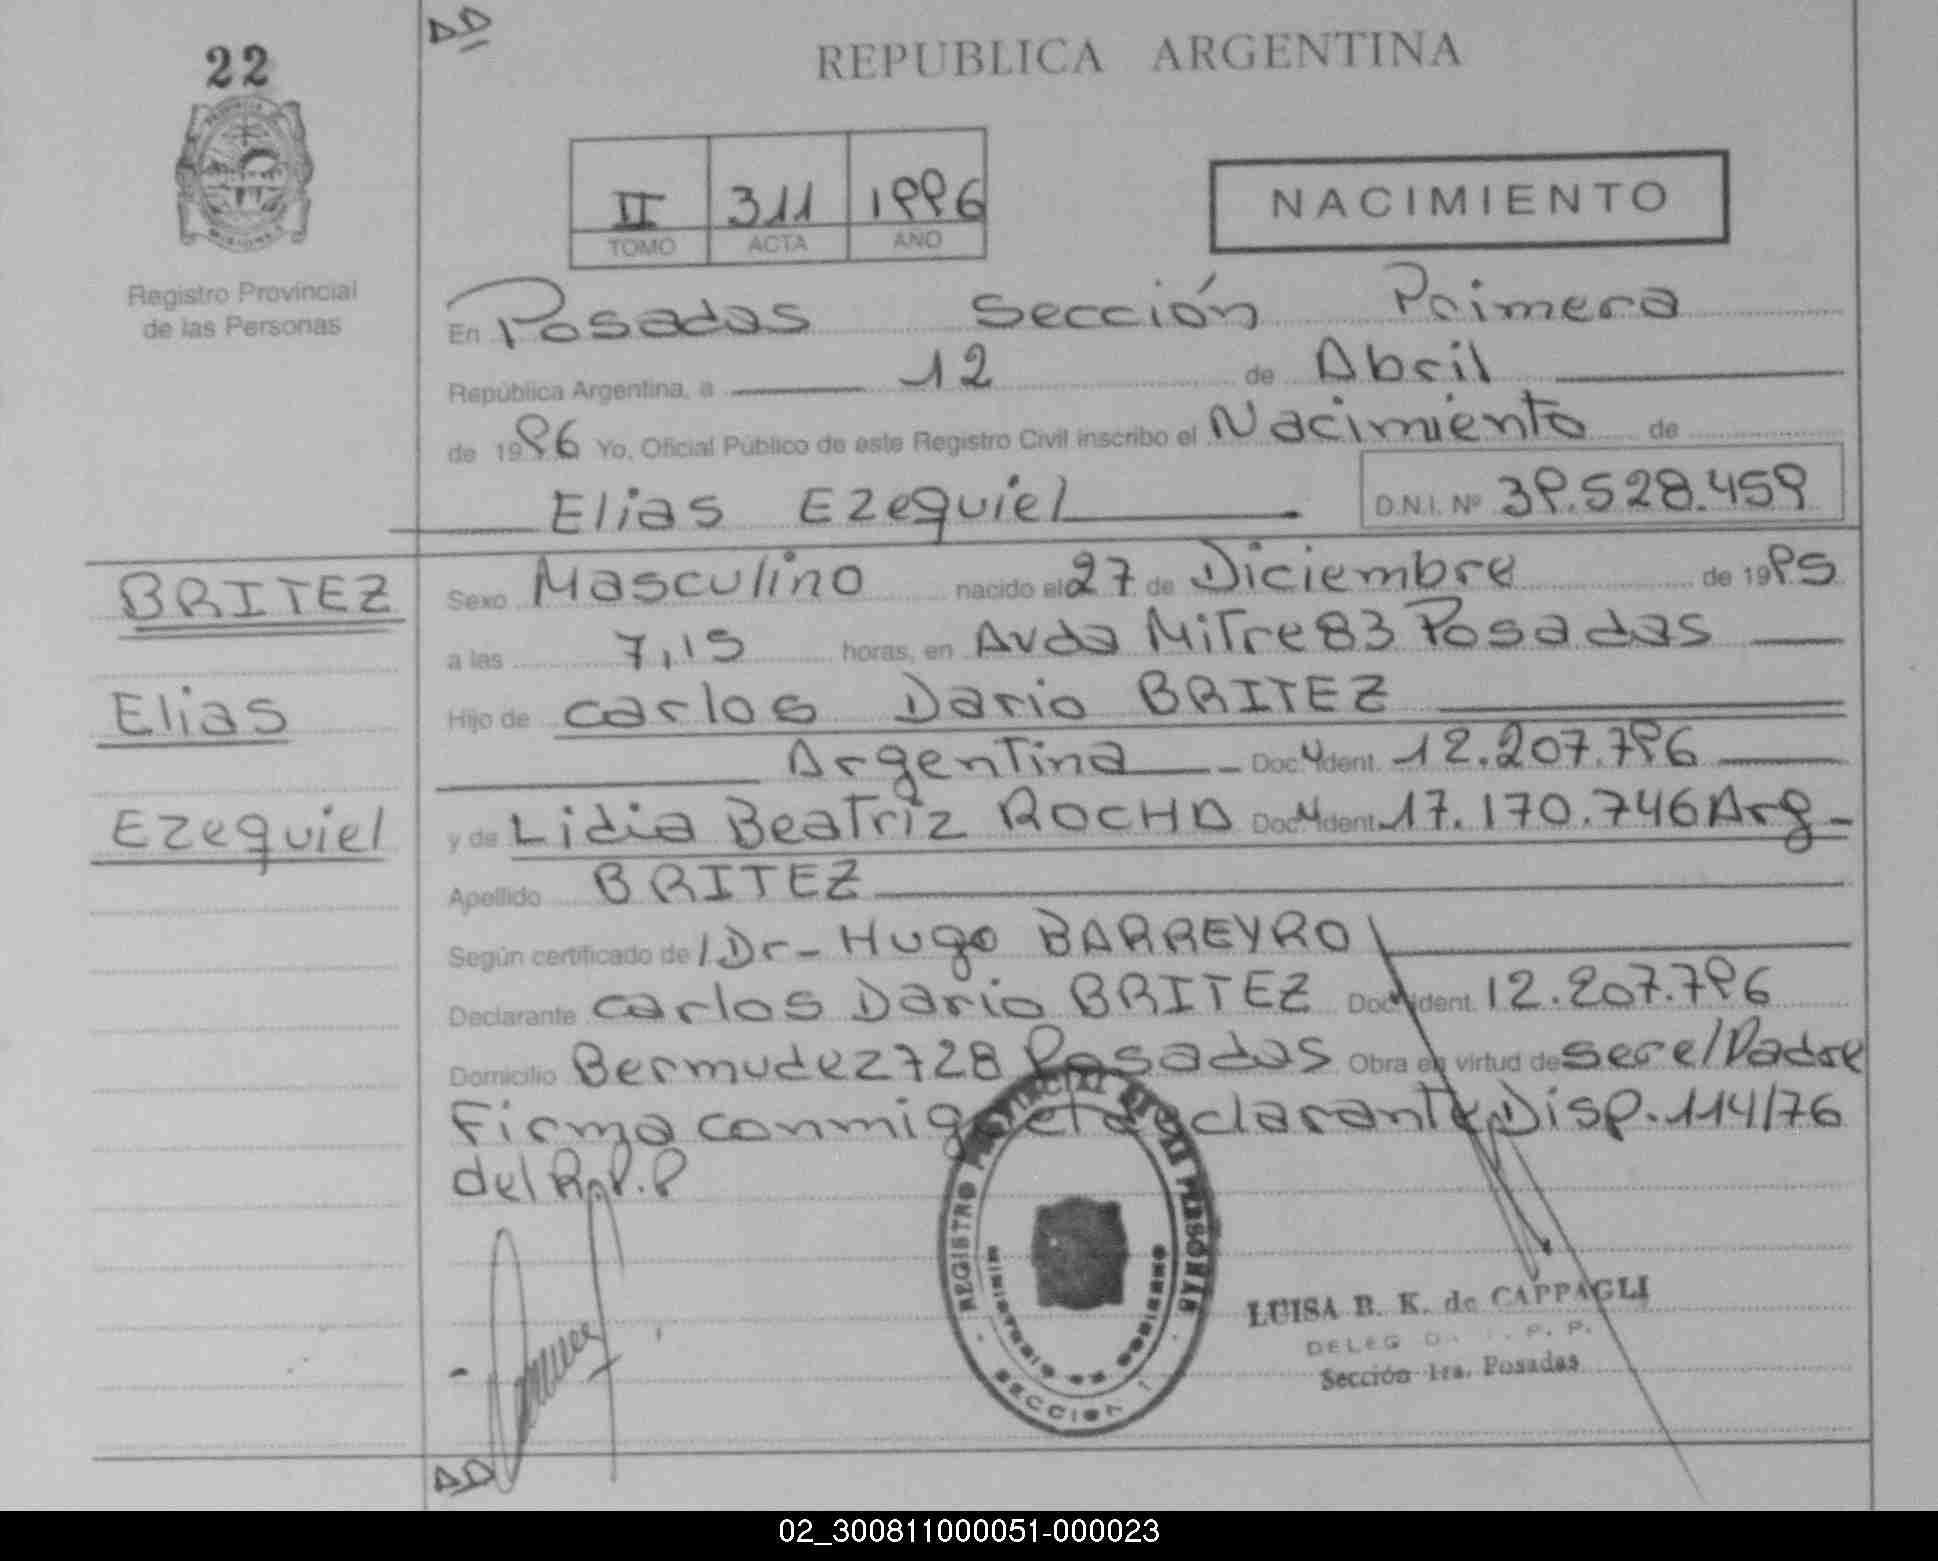 22
DD
REPUBLICA ARGENTINA
II 311 1996
TOMO ACTA AÑO
NACIMIENTO
Registro Provincial
de las Personas
En Posadas Sección Primera
República Argentina, a 12 de Abril
de 1996 Yo, Oficial Público de este Registro Civil inscribo el Nacimiento de
Elias Ezequiel D.N.I. Nº 39.528.459
BRITEZ
Elias
Ezequiel
Sexo Masculino nacido el 27 de Diciembre de 1995
a las 7,15 horas, en Avda Mitre 83 Posadas
Hijo de Carlos Dario BRITEZ
Argentina Doc. Ident. 12.207.796
y de Lidia Beatriz ROCHA Doc. Ident. 17.170.746 Arg
Apellido BRITEZ
Según certificado de / Dr- Hugo BARREYRO
Declarante Carlos Dario BRITEZ Doc. Ident. 12.207.796
Domicilio Bermudez 728 Posadas Obra en virtud de ser el Padre
Firma conmigo el declarante Disp. 114/76
del R.P.P
REGISTRO PROVINCIAL DE LAS PERSONAS
MINISTERIO DE GOBIERNO
SECCION 1
LUISA B. K. de CAPPAGLI
DELEG P. P.
Sección 1ra. Posadas
DD
02_300811000051-000023